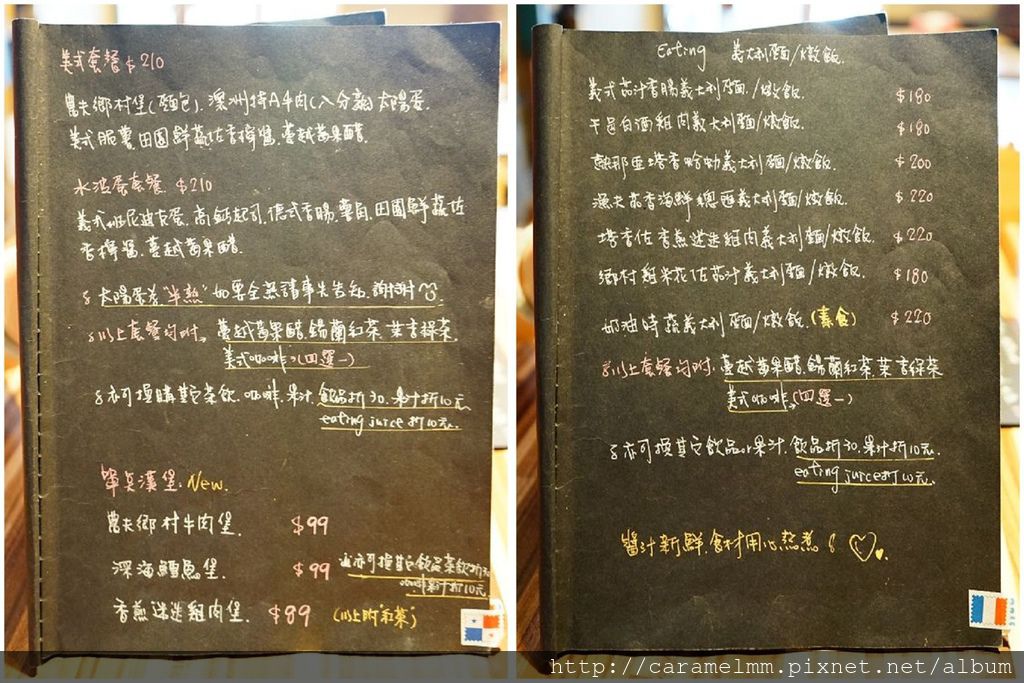 美式套餐 $210
農夫鄉村堡(麵包). 澳洲特A牛肉(八分熟) 太陽蛋.
美式脆薯. 田園鮮蔬佐香檸醬. 蔓越莓果醋.
水波蛋套餐. $210
義式班尼迪克蛋. 高鈣起司. 德式香腸. 薯角. 田園鮮蔬佐
香檸醬. 蔓越莓果醋.
太陽蛋為"半熟"如要全熟請事先告知. 謝謝
以上套餐均附. 蔓越莓果醋. 錫蘭紅茶. 茉香綠茶.
美式咖啡.(四選一)
亦可換購其它茶飲. 咖啡. 果汁. 飲品折30. 果汁折10元
eating juice折10元.
單點漢堡. New.
農夫鄉村牛肉堡. $99
深海鱈魚堡. $99 亦可換其它飲品茶飲折30
果汁折10元
香煎迷迭雞肉堡. $89 (以上附"紅茶")
Eating 義大利麵/燉飯.
義式茄汁香腸義大利麵/燉飯. $180
干邑白酒雞肉義大利麵/燉飯. $180
熱那亞塔香蛤蜊義大利麵/燉飯. $200
漁夫茄香海鮮總匯義大利麵/燉飯. $220
塔香佐香煎迷迭雞肉義大利麵/燉飯. $220
鄉村雞米花佐茄汁義大利麵/燉飯. $180
奶油時蔬義大利麵/燉飯.(素食) $220
以上套餐均附. 蔓越莓果醋. 錫蘭紅茶. 茉香綠茶
美式咖啡.(四選一)
亦可換其它飲品or果汁. 飲品折30. 果汁折10元.
eating juice折10元.
醬汁新鮮. 食材用心熬煮
http://caramelmm.pixnet.net/album